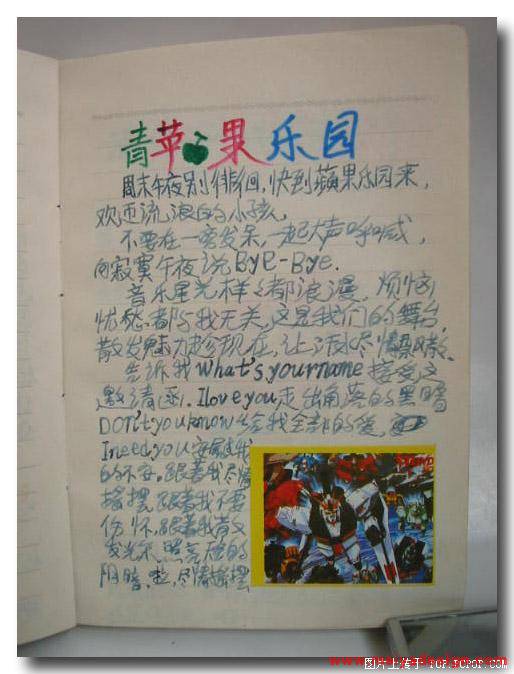 青苹果乐园
周末午夜别徘徊，快到蘋果乐园来，
欢迎流浪的小孩，
不要在一旁发呆，一起大声呼喊，
向寂寞午夜说Bye-Bye.
音乐星光样样都浪漫，烦恼
忧愁都与我无关，这是我们的舞台，
散发魅力趁现在，让汗水尽情飘散、
告诉我what's yourname接受这
邀请函. Iloveyou走出角落的黑暗
DON't youknow给我全部的爱，
Ineedyou安慰我
的不安。跟着我尽情
摇摆 跟着我不要
伤怀. 跟着我散
发光
阴暗. 尽情摇摆
图片上传于 TopCroP.com